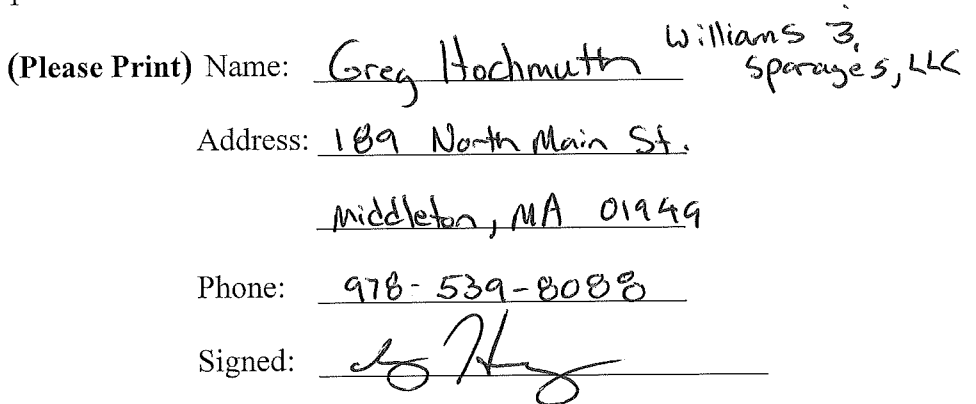 (Please Print) Name: Greg Hochmuth Williams &
Sparages, LLC
Address: 189 North Main St.
Middleton, MA 01949
Phone: 978-539-8088
Signed: